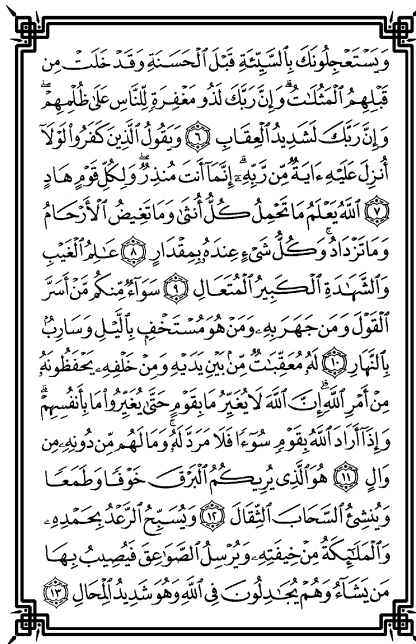 وَيَسْتَعْجِلُونَكَ بِالسَّيِّئَةِ قَبْلَ الْحَسَنَةِ وَقَدْ خَلَتْ مِن
قَبْلِهِمُ الْمَثُلَاتُ ۗ وَإِنَّ رَبَّكَ لَذُو مَغْفِرَةٍ لِّلنَّاسِ عَلَىٰ ظُلْمِهِمْ ۖ
وَإِنَّ رَبَّكَ لَشَدِيدُ الْعِقَابِ ٦ وَيَقُولُ الَّذِينَ كَفَرُوا لَوْلَا
أُنزِلَ عَلَيْهِ ءَايَةٌ مِّن رَّبِّهِۦٓ ۗ إِنَّمَا أَنتَ مُنذِرٌ ۖ وَلِكُلِّ قَوْمٍ هَادٍ
٧ اللَّهُ يَعْلَمُ مَا تَحْمِلُ كُلُّ أُنثَىٰ وَمَا تَغِيضُ الْأَرْحَامُ
وَمَا تَزْدَادُ ۖ وَكُلُّ شَىْءٍ عِندَهُۥ بِمِقْدَارٍ ٨ عَٰلِمُ الْغَيْبِ
وَالشَّهَٰدَةِ الْكَبِيرُ الْمُتَعَالِ ٩ سَوَآءٌ مِّنكُم مَّنْ أَسَرَّ
الْقَوْلَ وَمَن جَهَرَ بِهِۦ وَمَنْ هُوَ مُسْتَخْفٍۭ بِالَّيْلِ وَسَارِبٌۢ
بِالنَّهَارِ ١٠ لَهُۥ مُعَقِّبَٰتٌ مِّنۢ بَيْنِ يَدَيْهِ وَمِنْ خَلْفِهِۦ يَحْفَظُونَهُۥ
مِنْ أَمْرِ اللَّهِ ۗ إِنَّ اللَّهَ لَا يُغَيِّرُ مَا بِقَوْمٍ حَتَّىٰ يُغَيِّرُوا مَا بِأَنفُسِهِمْ ۗ
وَإِذَآ أَرَادَ اللَّهُ بِقَوْمٍ سُوٓءًا فَلَا مَرَدَّ لَهُۥ ۚ وَمَا لَهُم مِّن دُونِهِۦ مِن
وَالٍ ١١ هُوَ الَّذِى يُرِيكُمُ الْبَرْقَ خَوْفًا وَطَمَعًا
وَيُنشِئُ السَّحَابَ الثِّقَالَ ١٢ وَيُسَبِّحُ الرَّعْدُ بِحَمْدِهِۦ
وَالْمَلَٰٓئِكَةُ مِنْ خِيفَتِهِۦ وَيُرْسِلُ الصَّوَٰعِقَ فَيُصِيبُ بِهَا
مَن يَشَآءُ وَهُمْ يُجَٰدِلُونَ فِى اللَّهِ وَهُوَ شَدِيدُ الْمِحَالِ ١٣